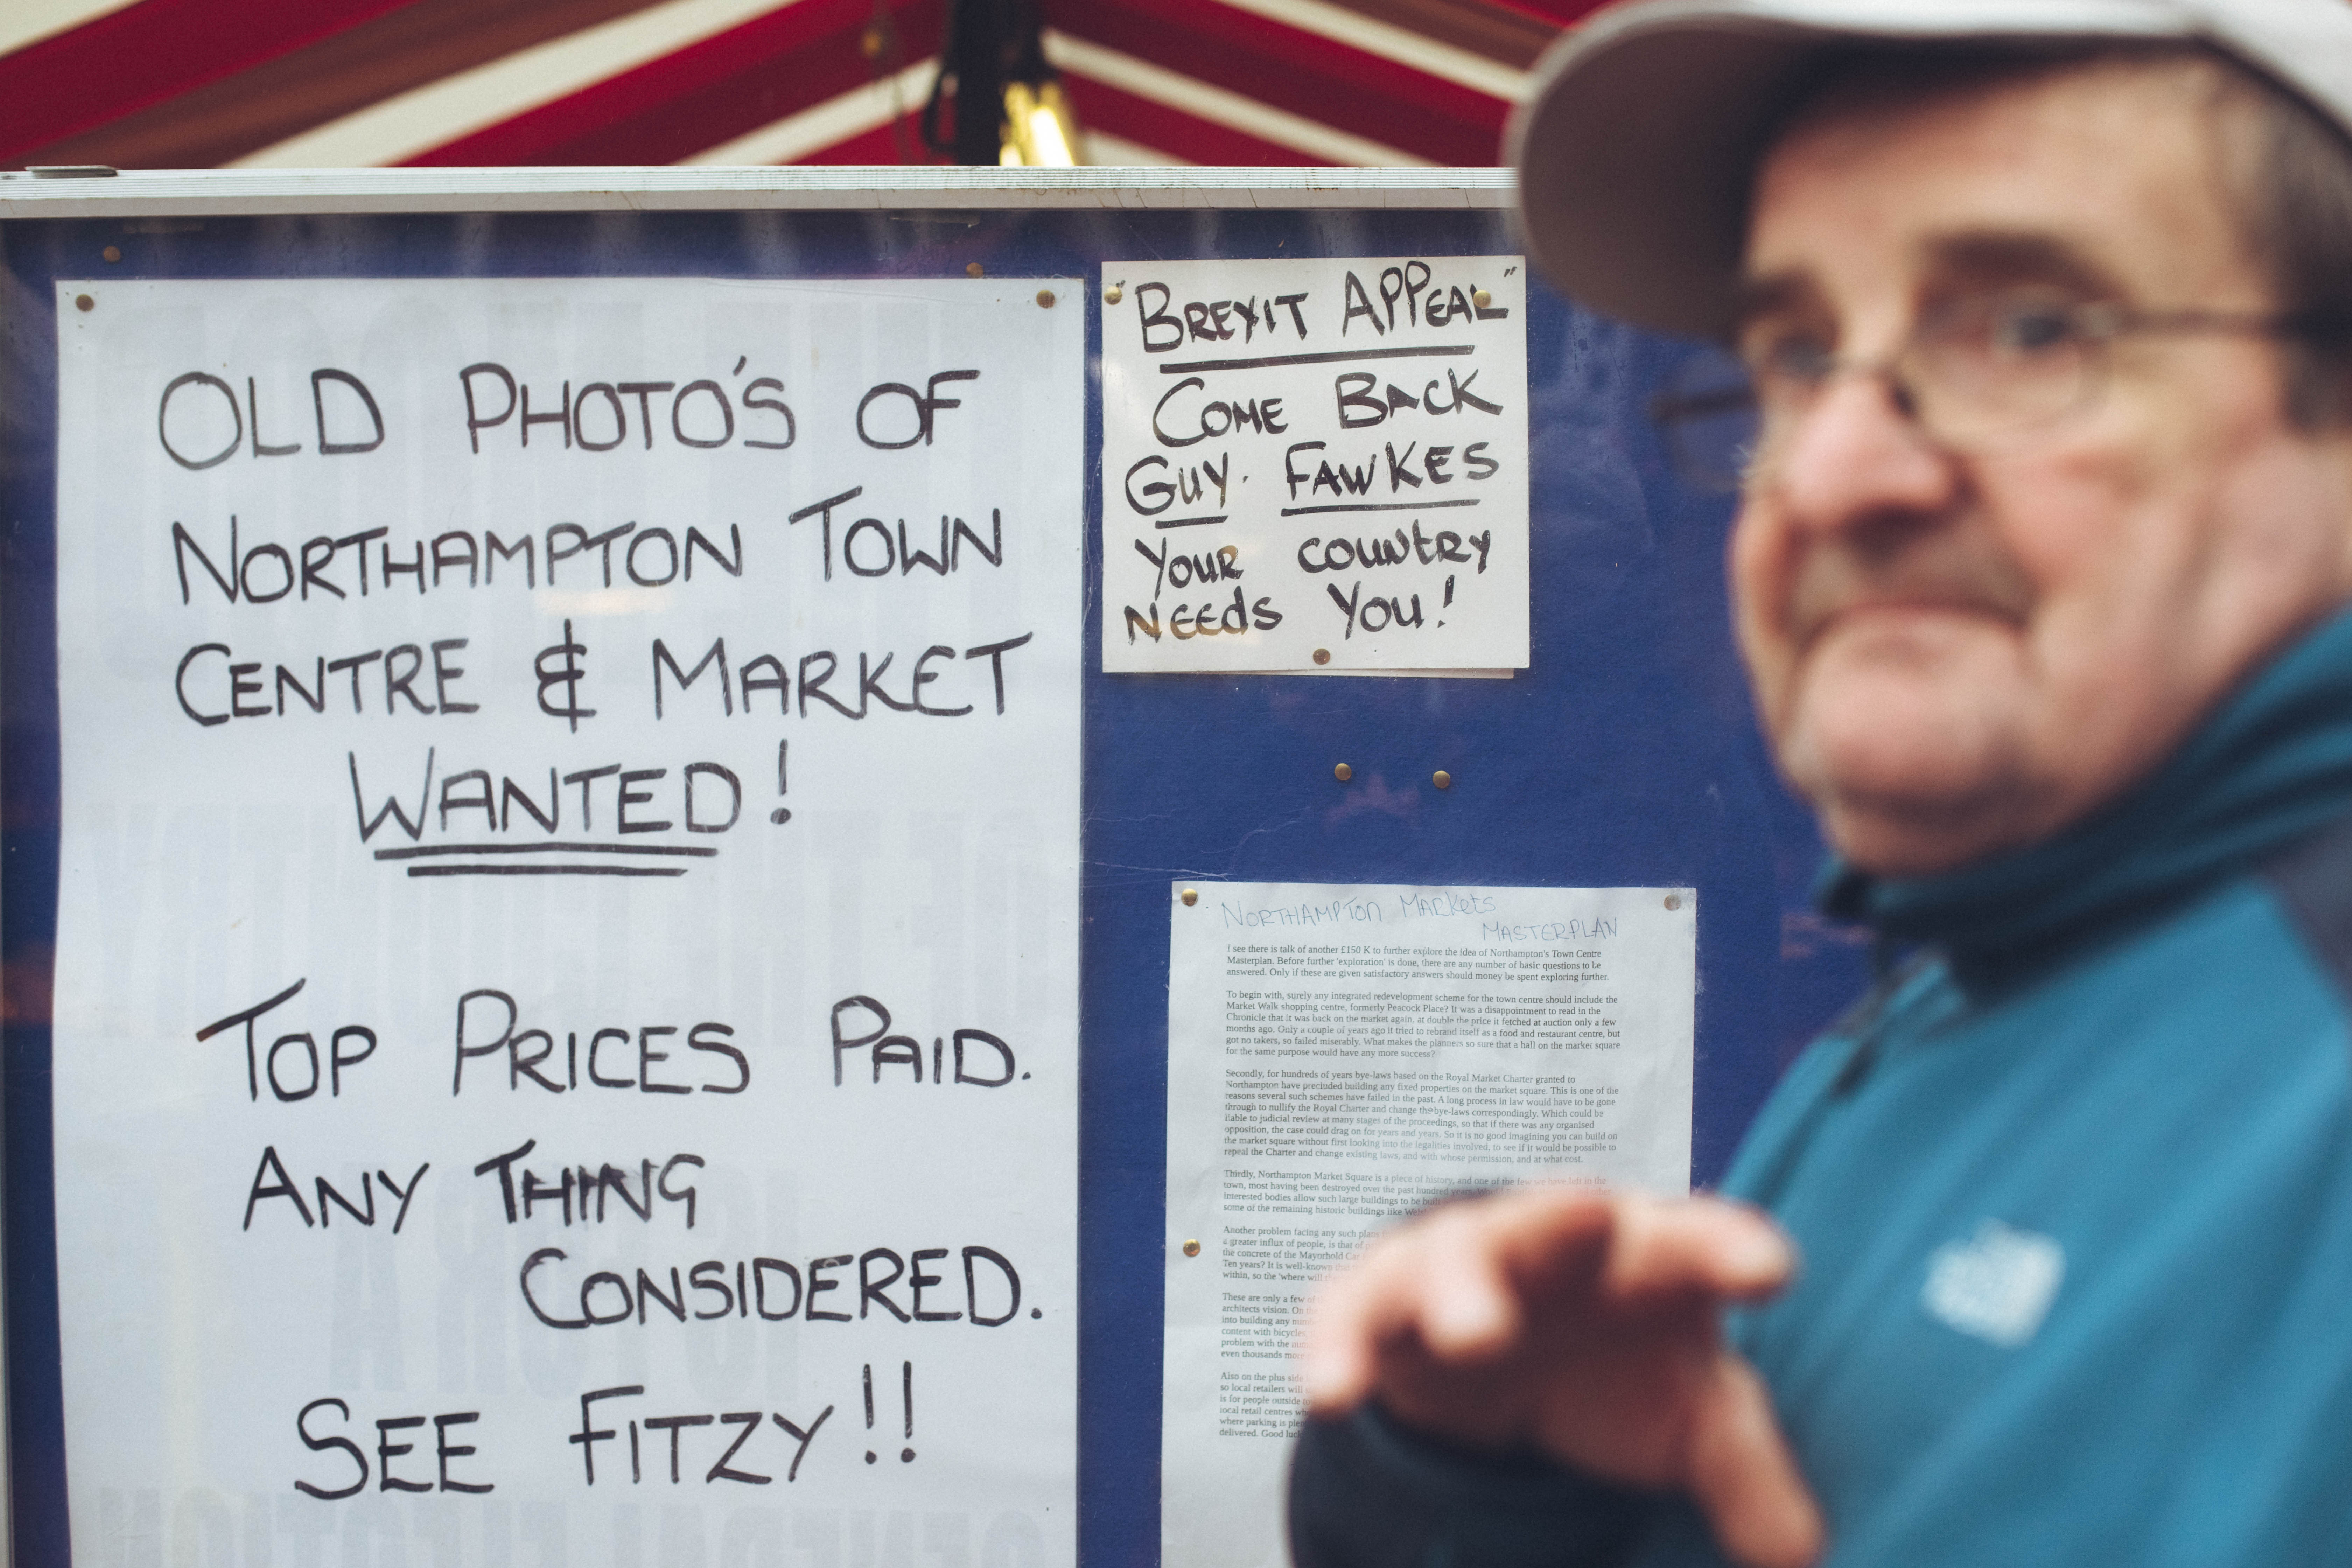 OLD PHOTO'S OF
NORTHAMPTON TOWN
CENTRE & MARKET
WANTED!
TOP PRICES PAID.
ANY THING
CONSIDERED.
SEE FITZY!!
"BREXIT APPEAL"
COME BACK
GUY. FAWKES
YOUR COUNTRY
NEEDS YOU!
NORTHAMPTON MARKETS
MASTERPLAN
I see there is talk of another £150 K to further explore the idea of Northampton's Town Centre
Masterplan. Before further 'exploration' is done, there are any number of basic questions to be
answered. Only if these are given satisfactory answers should money be spent exploring further.
To begin with, surely any integrated redevelopment scheme for the town centre should include the
Market Walk shopping centre, formerly Peacock Place? It was a disappointment to read in the
Chronicle that it was back on the market again, at double the price it fetched at auction only a few
months ago. Only a couple of years ago it tried to rebrand itself as a food and restaurant centre, but
got no takers, so failed miserably. What makes the planners so sure that a hall on the market square
for the same purpose would have any more success?
Secondly, for hundreds of years bye-laws based on the Royal Market Charter granted to
Northampton have precluded building any fixed properties on the market square. This is one of the
reasons several such schemes have failed in the past. A long process in law would have to be gone
through to nullify the Royal Charter and change the bye-laws correspondingly. Which could be
liable to judicial review at many stages of the proceedings, so that if there was any organised
opposition, the case could drag on for years and years. So it is no good imagining you can build on
the market square without first looking into the legalities involved, to see if it would be possible to
repeal the Charter and change existing laws, and with whose permission, and at what cost.
Thirdly, Northampton Market Square is a piece of history, and one of the few we have left in the
town, most having been destroyed over the past hundred years.
interested bodies allow such large buildings to be built
some of the remaining historic buildings like
Another problem facing any such plans
a greater influx of people, is that of
the concrete of the Mayorhold
Ten years? It is well-known that
within, so the 'where will
These are only a few of
architects vision. On
into building any
content with bicycles
problem with the
even thousands
Also on the plus side
so local retailers will
is for people outside
local retail centres
where parking is
delivered. Good